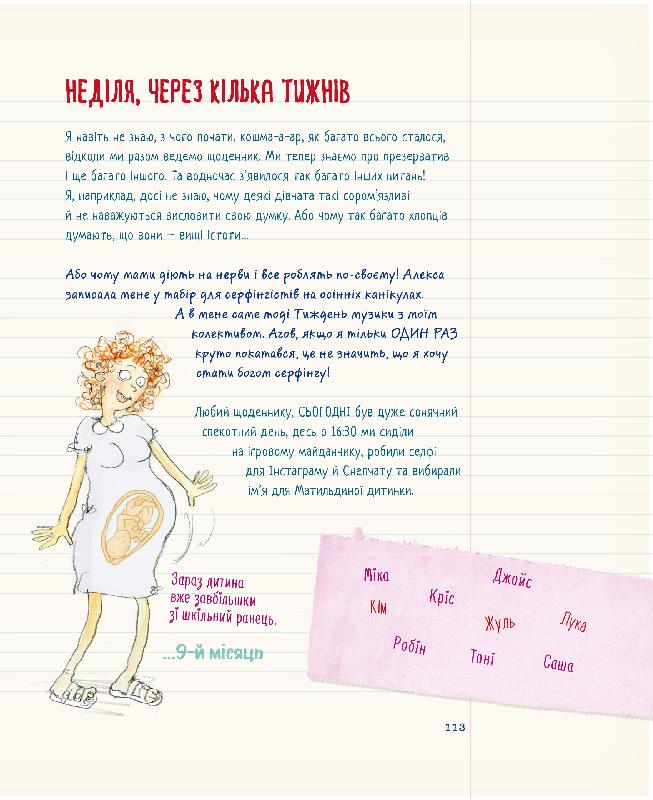 НЕДІЛЯ, ЧЕРЕЗ КІЛЬКА ТИЖНІВ
Я навіть не знаю, з чого почати, кошма-а-ар, як багато всього сталося,
відколи ми разом ведемо щоденник. Ми тепер знаємо про презерватив
і ще багато іншого. Та водночас з'явилося так багато інших питань!
Я, наприклад, досі не знаю, чому деякі дівчата такі сором'язливі
й не наважуються висловити свою думку. Або чому так багато хлопців
думають, що вони – вищі істоти...
Або чому мами діють на нерви і все роблять по-своєму! Алекса
записала мене у табір для серфінгістів на осінніх канікулах.
А в мене саме тоді Тиждень музики з моїм
колективом. Агов, якщо я тільки ОДИН РАЗ
круто покатався, це не значить, що я хочу
стати богом серфінгу!
Любий щоденнику, СЬОГОДНІ був дуже сонячний
спекотний день, десь о 16:30 ми сиділи
на ігровому майданчику, робили селфі
для Інстаграму й Снепчату та вибирали
ім'я для Матильдиної дитинки.
Зараз дитина
вже завбільшки
зі шкільний ранець.
...9-й місяць
Міка
Джойс
Кім
Кріс
Жуль
Лука
Робін
Тоні
Саша
113